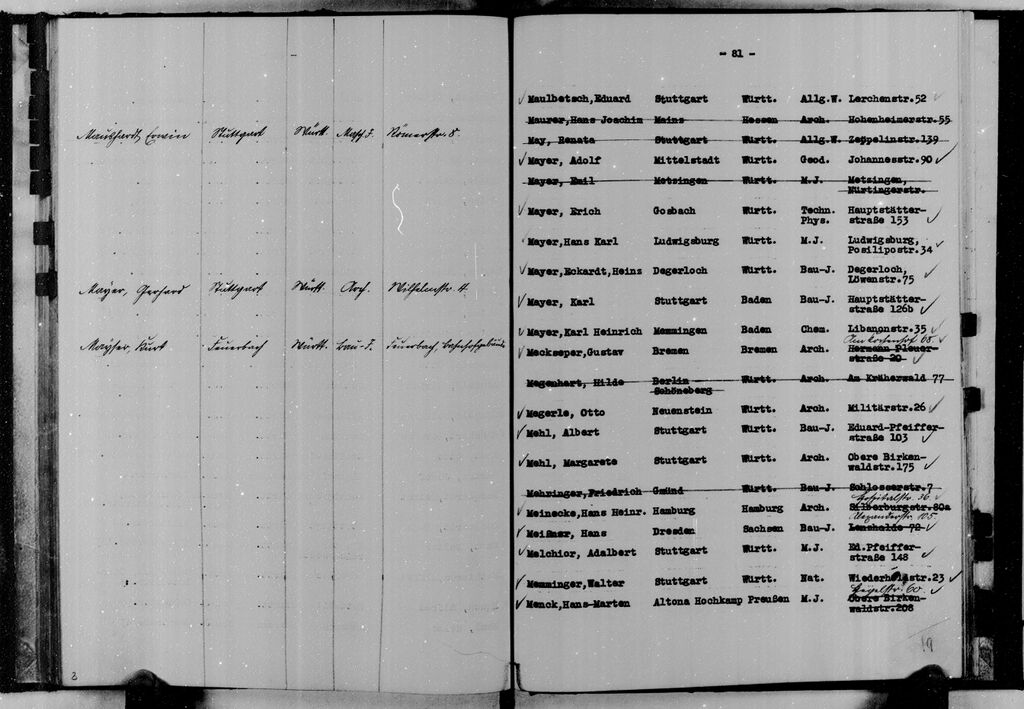 Mauthardt, Erwin Stuttgart Württ. Masch.J. Römerstr. 8.
Mayer, Gerhard Stuttgart Württ. Arch. Wilhelmstr. 4.
Mayser, Kurt Feuerbach Württ. Bau-J. Feuerbach, Bahnhofgebäude
2
- 81 -
Maulbetsch,Eduard Stuttgart Württ. Allg.W. Lerchenstr.52
Maurer,Hans Joachim Mainz Hessen Arch. Hohenheimerstr.55
May, Renata Stuttgart Württ. Allg.W. Zeppelinstr.139
Mayer, Adolf Mittelstadt Württ. Geod. Johannesstr.90
Mayer, Emil Metzingen Württ. M.J. Metzingen,
Nürtingerstr.
Mayer, Erich Gosbach Württ. Techn. Hauptstätter-
Phys. straße 153
Mayer,Hans Karl Ludwigsburg Württ. M.J. Ludwigsburg,
Posilipostr.34
Mayer,Eckardt,Heinz Degerloch Württ. Bau-J. Degerloch,
Löwenstr.75
Mayer, Karl Stuttgart Baden Bau-J. Hauptstätter-
straße 126b
Mayer,Karl Heinrich Memmingen Baden Chem. Libanonstr.35
Am 68.
Meckseper,Gustav Bremen Bremen Arch. Hermann Pleuer-
straße 20
Megenhart, Hilde Berlin Württ. Arch. Am Kräherwald 77
Schöneberg
Megerle, Otto Neuenstein Württ. Arch. Militärstr.26
Mehl, Albert Stuttgart Württ. Bau-J. Eduard-Pfeiffer-
straße 103
Mehl, Margarete Stuttgart Württ. Arch. Obere Birken-
waldstr.175
Mehringer,Friedrich Gmünd Württ. Bau-J. Schlosserstr.7
Hospitalstr. 36.
Meinecke,Hans Heinr. Hamburg Hamburg Arch. Silberburgstr.80a
Alexanderstr. 105.
Meißner, Hans Dresden Sachsen Bau-J. Lenzhalde 72
Melchior, Adalbert Stuttgart Württ. M.J. Ed.Pfeiffer-
straße 148
Memminger,Walter Stuttgart Württ. Nat. Wiederholdstr.23
Hegelstr. 60.
Menck,Hans-Marten Altona Hochkamp Preußen M.J. Obere Birken-
waldstr.208
19